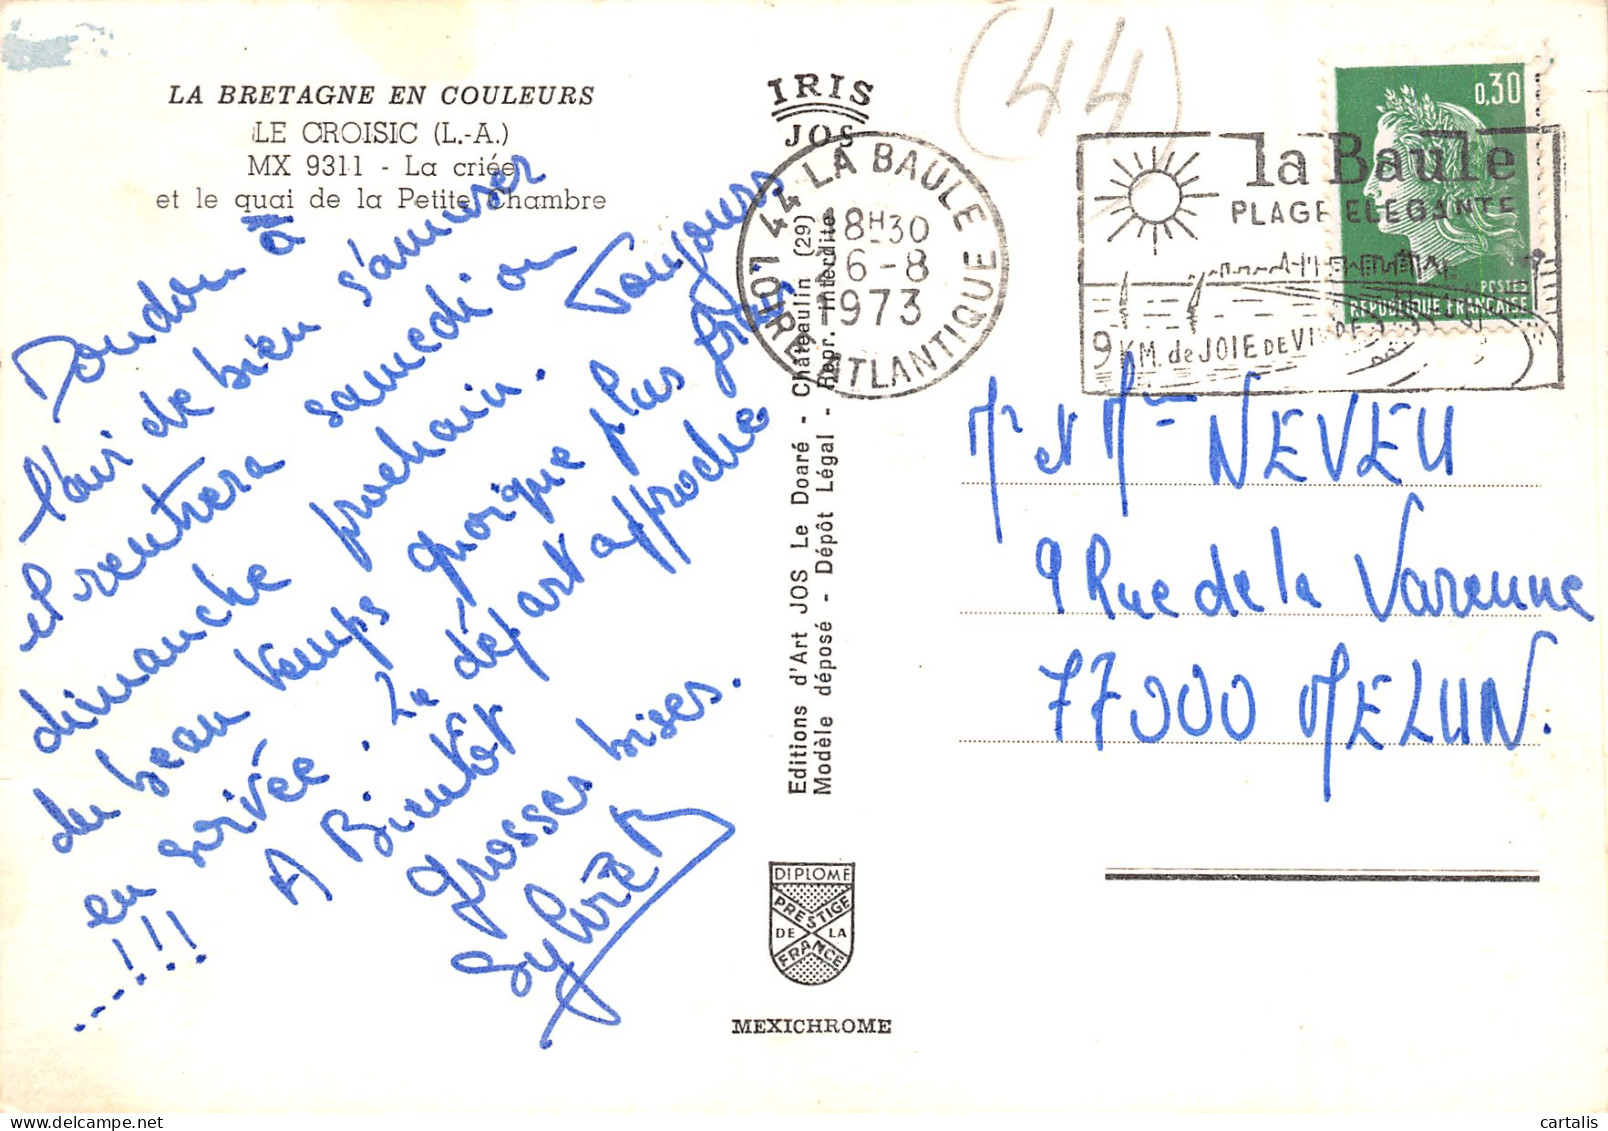 LA BRETAGNE EN COULEURS
LE CROISIC (L.-A.)
MX 9311 - La criée
et le quai de la Petite Chambre
Doudou à
l'air de bien s'amuser
et rentrera samedi ou
dimanche prochain. Toujours
du beau temps quoique plus frais
en soirée. Le départ approche
...!!! A Bientôt
grosses bises.
IRIS
JOS
Editions d'Art JOS Le Doaré - Châteaulin (29)
Modèle déposé - Dépôt Légal - Repr. interdite
DIPLOME
PRESTIGE
DE LA
FRANCE
MEXICHROME
(44)
44 LA BAULE
LOIRE ATLANTIQUE
18H30
6-8
1973
la Baule
PLAGE ELEGANTE
9 KM. de JOIE DE VIVRE
0,30
POSTES
REPUBLIQUE FRANÇAISE
Mr et Mme NEVEU
9 Rue de la Varenne
77000 MELUN.
cartalis
delcampe.net